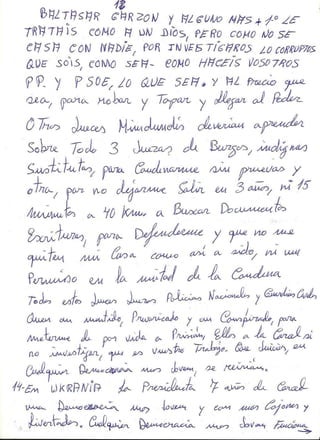 18
BALTASAR GARZON Y ALGUNO MAS + 1º LE
TRATAIS COMO A UN DIOS, PERO COMO NO SE
CASA CON NADIE, POR INVESTIGAROS LO CORRUPTOS
QUE SOIS, COMO SEA - COMO HACEIS VOSOTROS
PP. Y PSOE, LO QUE SEA. Y AL Precio que
sea, para robar y Tapar y llegar al Poder
OTros Jueces Mindundis deverian aprender
Sobre Todo 3 Juezas de Burgos, indignas
Sustitutas, para Condenarme sin pruevas y
otra, por no dejarme Salir en 3 años, ni 15
minutos a 40 Kms a Buscar Documentos
Escrituras, para Defenderme y que no me
quiten mi Casa como asi a sido, ni un
Permiso en la mitad de la Condena
Todos estos Jueces Juezas Policias Nacionales y Guardias Civiles
Quen an mentido, Prevaricado y an Conspirado, para
meterme de por vida a Prisión, Ellos a la Carcel si
no investigar, que es vuestro Trabajo. Que Juicios, en
Cualquier Democracia mas Joven, se reirian.
14-En UKRANIA la Presidenta 7 años de Carcel
una Democracia mas Joven y con mas Cojones y
Cualquier Democracia mas Jovan Funciona